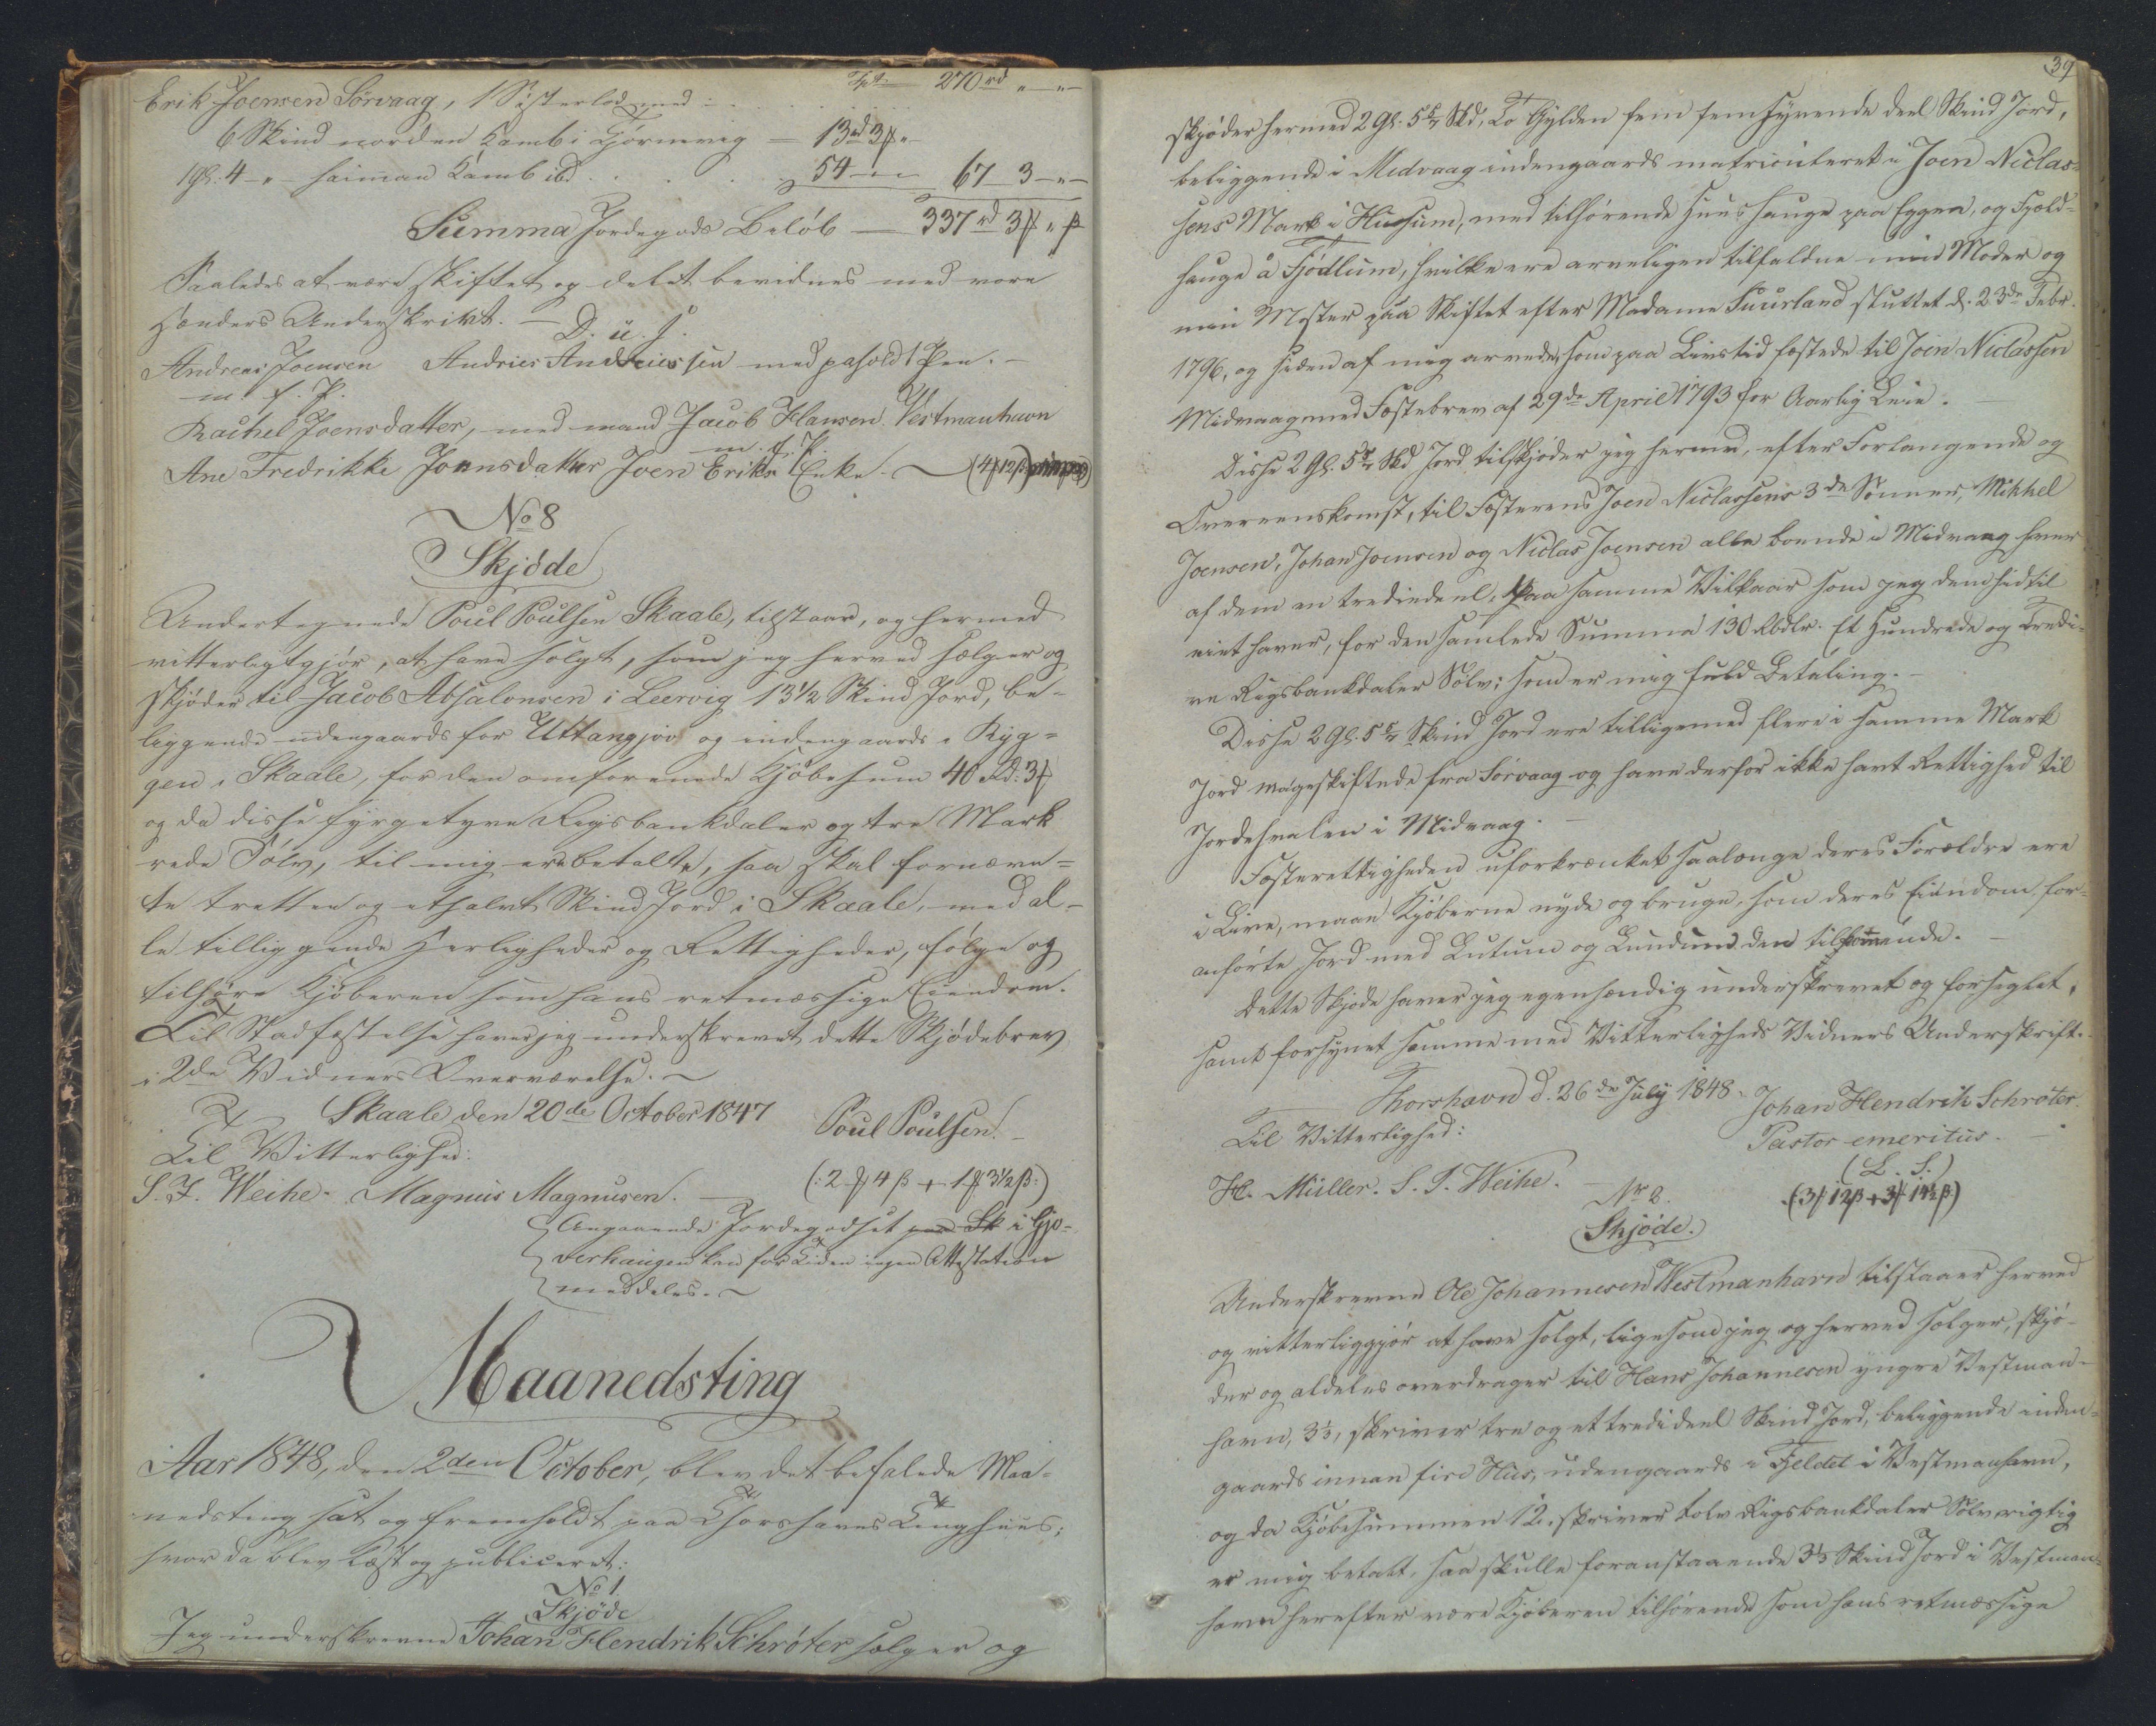 Tpt. 270 rd " — " —
Erik Joensen Sørvaag, 1 Søsterlod med :
6 Skind norden Kamb i Tjørnevig = 13 rd 3 ₻ "
1 Gl. 4 — " — heiman Kamb ibd . . . . 54 — " — 67 — 3 — " —
Summa Jordegods Beløb — 337 rd 3 ₻ " β
Saaledes at være skiftet og delet bevidnes med vore
Hænders Underskrivt. — D. u. s.
Andreas Joensen Andries Andriessen med paholdt Pen. —
m. f. P.
Rachel Joensdatter, med mand Jacob Hansen Vestmanhavn
m. f. P.
Ane Fredrikke Joensdatter Joen Eriks. Enke. — (4 ₻ 12 β)
No 8
Skjøde
Undertegnede Poul Poulsen Skaale, tilstaar, og hermed
vitterligtgjør, at have solgt, som jeg herved sælger og
skjøder til Jacob Absalonsen i Leervig 13 1/2 Skind Jord, be-
liggende udengaards for Uttangjov og indengaards i Ryg=
gen i Skaale, for den omforenede Kjøbesum 40 Rd. 3 ₻
og da disse fyrgetyve Rigsbankdaler og tre Mark
rede Sølv, til mig ere betalte, saa skal fornævn=
te tretten og et halvt Skind Jord i Skaale, med al-
le tilliggende Herligheder og Rettigheder, følge og
tilhøre Kjøberen som hans retmæssige Eiendom.
Til Stadfæstelse haver jeg underskrevet dette Skjødebrev
i 2de Vidners Overværelse. —
Skaale den 20de October 1847 Poul Poulsen. —
Til Vitterlighed:
S. J. Weihe. Magnus Magnusen. — (: 2 ₻ 4 β + 1 ₻ 3 1/2 β :)
Angaaende Jordegodset paa Sk i Gjo-
verhaugen kan for Tiden ingen Attestation
meddeles. —
Maanedsting
Aar 1848, den 2den October, blev det befalede Maa-
nedsting sat og fremholdt paa Thorshavns Tinghuus;
hvor da blev læst og publiceret:
No 1
Skjøde
Jeg underskrevne Johan Hendrik Schrøter sælger og
39
skjøder hermed 2 Gl. 5 5/7 Skd, To Gylden fem fem syvende deel Skind Jord,
beliggende i Midvaag indengaards matriculeret i Joen Niclas-
sens Mark i Husum, med tilhørende Huus hauge paa Eggen, og Fjeld-
hauge å Fjødlum, hvilke ere arveligen tilfaldne min Moder og
min Moster paa Skiftet efter Madame Suurland sluttet d. 23de Febr.
1796, og siden af mig arvede, som paa Livstid fæstede til Joen Niclassen
Midvaag med Fæstebrev af 29de April 1793 for Aarlig Leie. —
Disse 2 Gl. 5 5/7 Skd Jord tilskjøder jeg hermed, efter Forlangende og
Overeenskomst, til Fæsterens Joen Niclassens 3de Sønner, Mikkel
Joensen, Johan Joensen og Niclas Joensen alle boende i Midvaag hver
af dem en trediedeel, paa samme Vilkaar som jeg dend hidtil
eiet haver, for den samlede Summa 130 Rbdlr. Et Hundrede og Tredi-
ve Rigsbankdaler Sølv; som er mig fuld Betaling. —
Disse 2 Gl. 5 5/7 Skind Jord ere tilligemed flere i samme Mark
Jord mageskiftede fra Sørvaag og have derfor ikke havt Rettighed til
Jordehvalen i Midvaag. —
Fæsterettigheden uforkrænket saalænge deres Forældre ere
i Live, maae Kjøberne nyde og bruge, som deres Eiendom, for-
anførte Jord med Lutum og Lundum den tilkommende. —
Dette Skjøde haver jeg egenhændig underskrevet og forseglet,
samt forsynet samme med Vitterligheds Vidners Underskrift.
Thorshavn d. 26de July 1848. Johan Hendrik Schrøter.
Til Vitterlighed: Pastor emeritus. —
H. Müller. S. J. Weihe. — (L. S.)
Nr 2. (3 ₻ 12 β + 3 ₻ 14 1/2 β)
Skjøde.
Underskrevne Ole Johannesen Westmanhavn tilstaaer herved
og vitterliggjør at have solgt, ligesom jeg og herved sælger, skjø-
der og aldeles overdrager til Hans Johannesen yngre Vestman-
havn, 3 1/3, skriver tre og et trediedeel Skind Jord, beliggende inden-
gaards innan firi Hus, udengaards i Fjeldet i Vestmanhavn,
og da Kjøbesummen 12. skriver tolv Rigsbankdaler Sølv rigtig
er mig betalt, saa skulle foranstaaende 3 1/3 Skind Jord i Vestman-
havn herefter være Kjøberen tilhørende som hans retmæssige